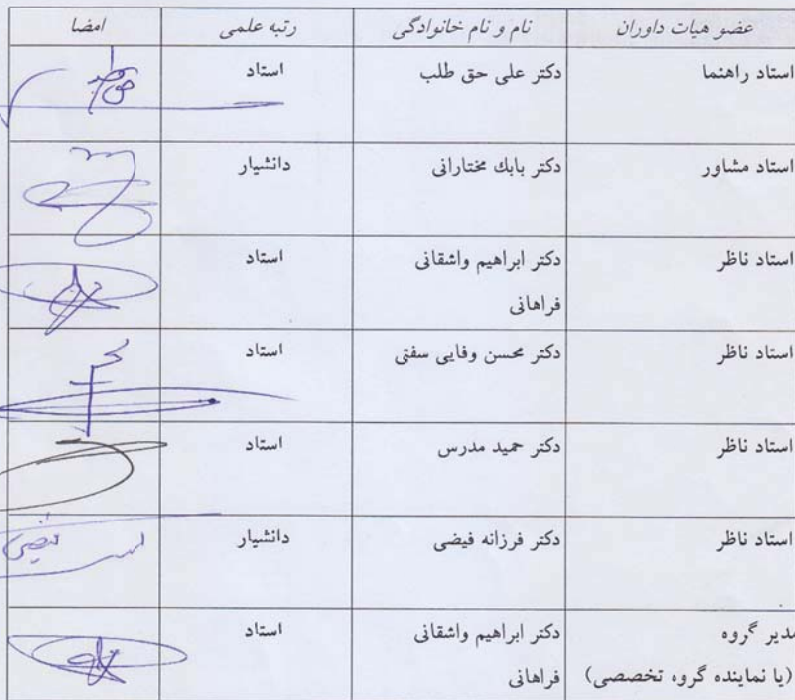 عضو هیات داوران نام و نام خانوادگی رتبه علمی امضا
استاد راهنما دکتر علی حق طلب استاد
استاد مشاور دکتر بابك مختارانی دانشیار
استاد ناظر دکتر ابراهیم واشقانی استاد
فراهانی
استاد ناظر دکتر محسن وفایی سفتی استاد
استاد ناظر دکتر حمید مدرس استاد
استاد ناظر دکتر فرزانه فیضی دانشیار
فیضی
مدیر گروه دکتر ابراهیم واشقانی استاد
(یا نماینده گروه تخصصی) فراهانی